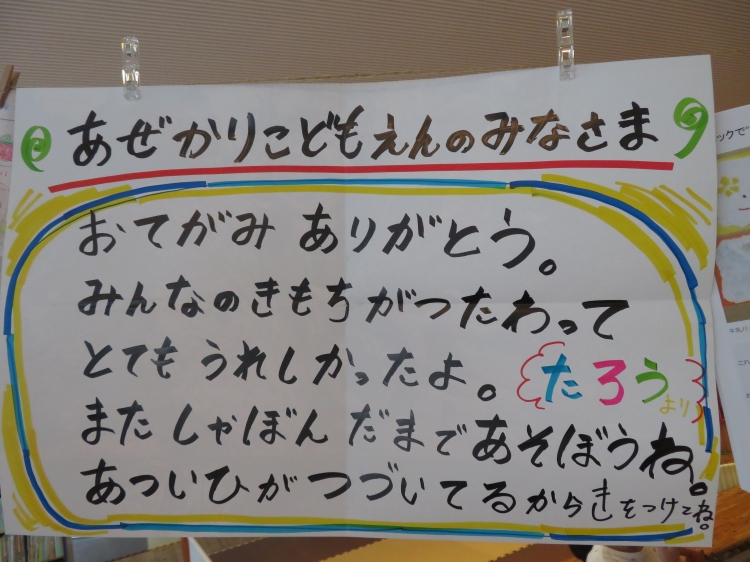 あぜかりこどもえんのみなさま
おてがみ ありがとう。
みんなのきもちがつたわって
とても うれしかったよ。
たろうより
また しゃぼん だまであそぼうね。
あついひがつづいてるからきをつけてね。
ックで